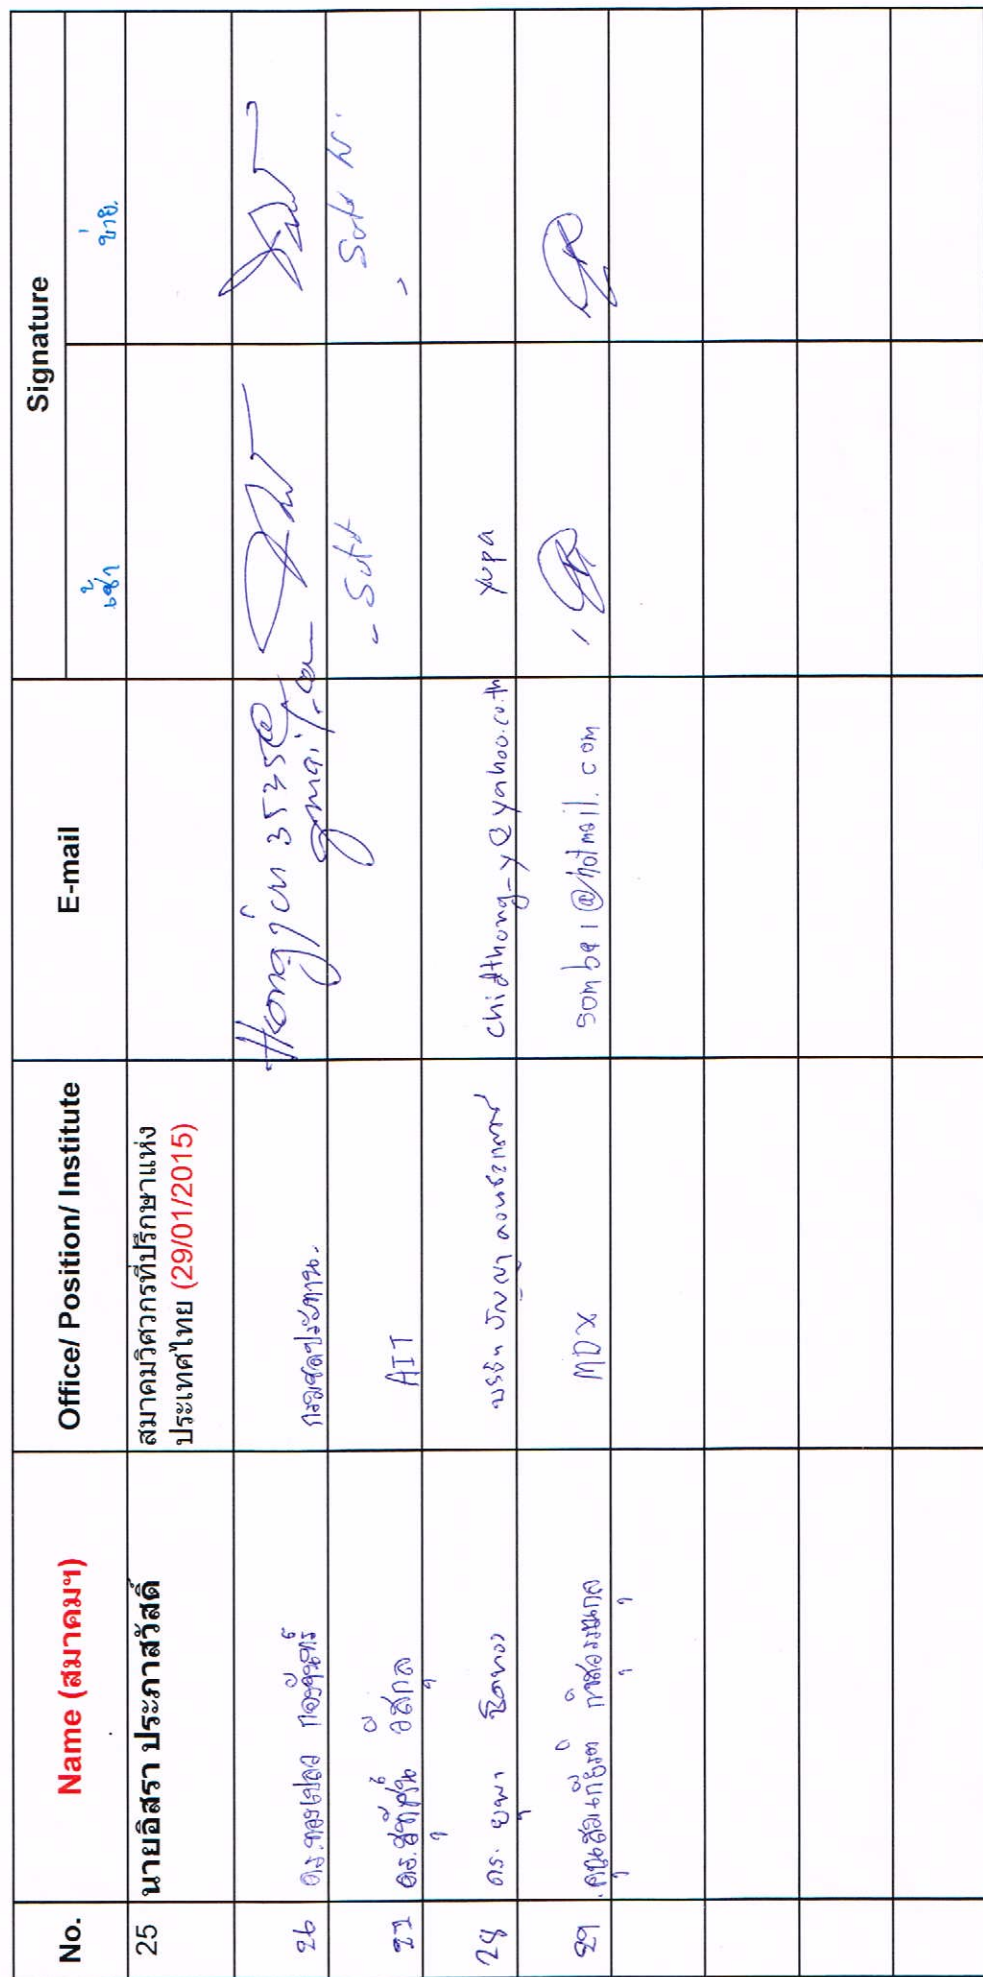 No. Name (สมาคมฯ) Office/ Position/ Institute E-mail Signature
เช้า บ่าย.
25 นายอิสรา ประภาสวัสดิ์ สมาคมวิศวกรที่ปรึกษาแห่ง
ประเทศไทย (29/01/2015)
26 ดร.ทองเปลว กองจันทร์ กรมชลประทาน. 3535@
gmail.com
27 ดร.สุทัศน์ วีสกุล AIT
28 ดร. ยุพา ชิดทอง บริษัท ปัญญา คอนซัลแตนท์ chidthong-y@yahoo.co.th yupa
29 คุณสมเกียรติ MDX sombat1@hotmail.com